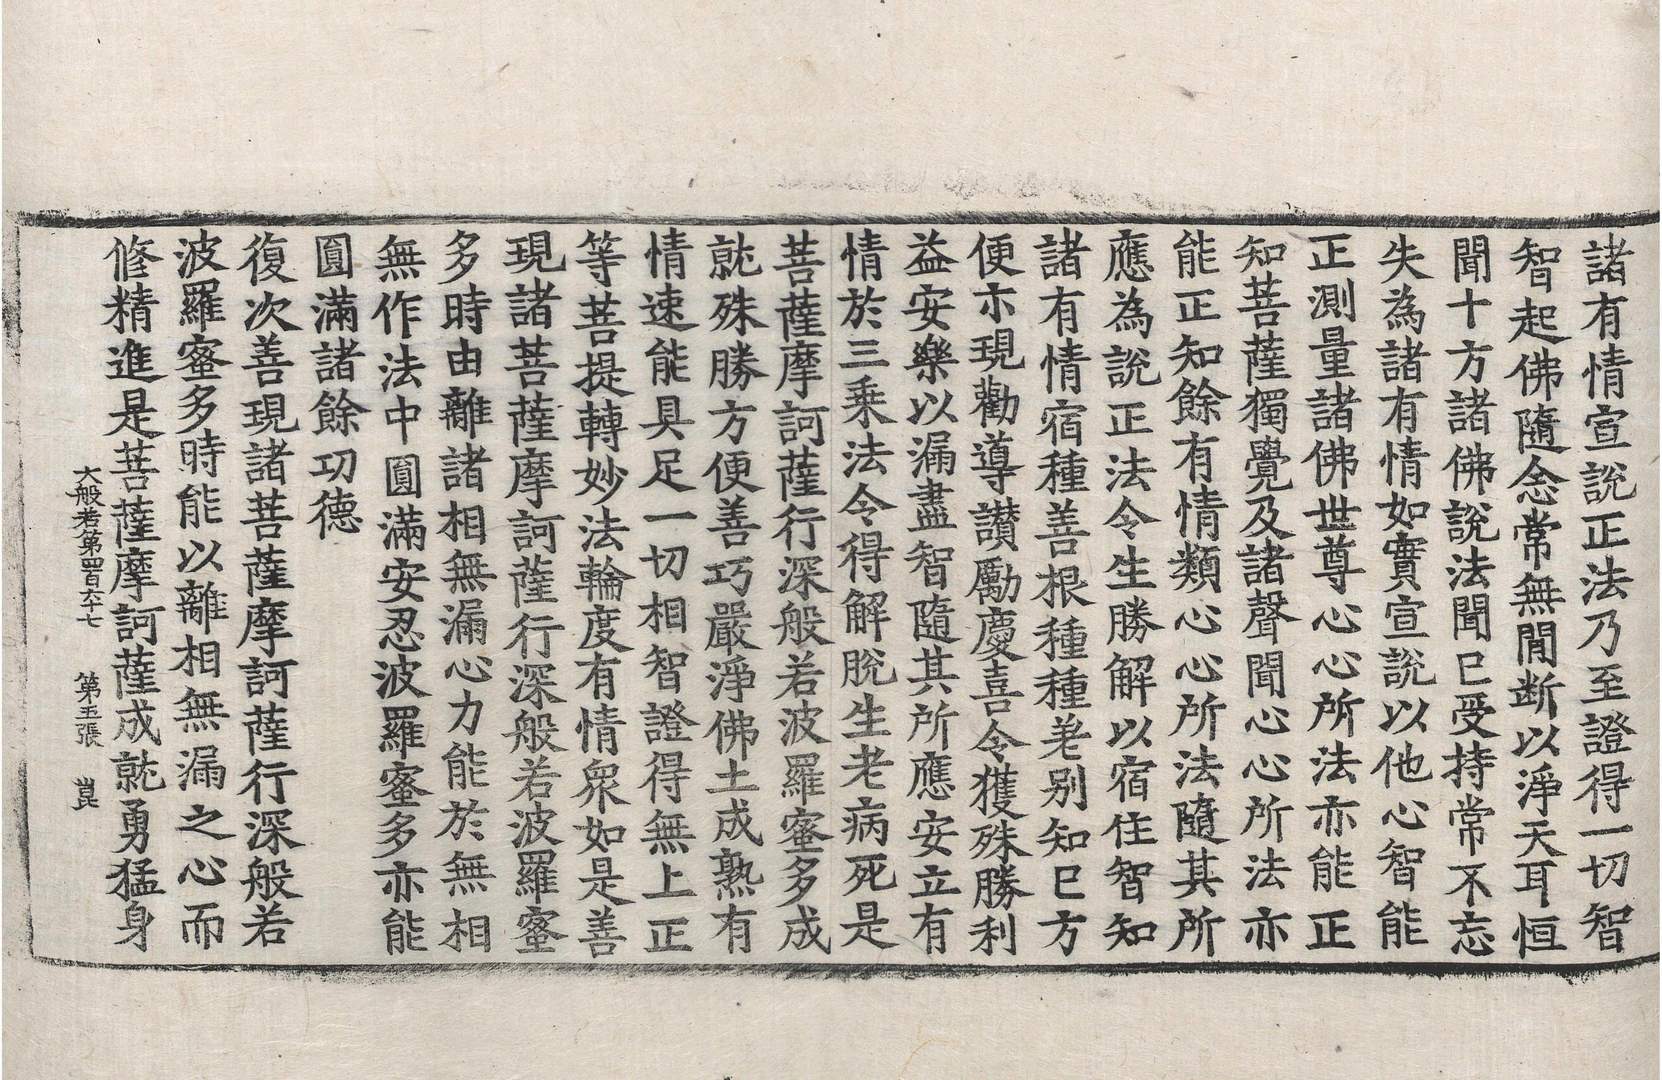 諸有情宣說正法乃至證得一切智
智起佛隨念常無閒斷以淨天耳恒
聞十方諸佛說法聞已受持常不忘
失為諸有情如實宣說以他心智能
正測量諸佛世尊心心所法亦能正
知菩薩獨覺及諸聲聞心心所法亦
能正知餘有情類心心所法隨其所
應為說正法令生勝解以宿住智知
諸有情宿種善根種種差別知已方
便示現勸導讃勵慶喜令獲殊勝利
益安樂以漏盡智隨其所應安立有
情於三乗法令得解脫生老病死是
菩薩摩訶薩行深般若波羅蜜多成
就殊勝方便善巧嚴淨佛土成熟有
情速能具足一切相智證得無上正
等菩提轉妙法輪度有情衆如是善
現諸菩薩摩訶薩行深般若波羅蜜
多時由離諸相無漏心力能於無相
無作法中圓滿安忍波羅蜜多亦能
圓滿諸餘功德
復次善現諸菩薩摩訶薩行深般若
波羅蜜多時能以離相無漏之心而
修精進是菩薩摩訶薩成就勇猛身
大般若第四百六十七 第五張 崑